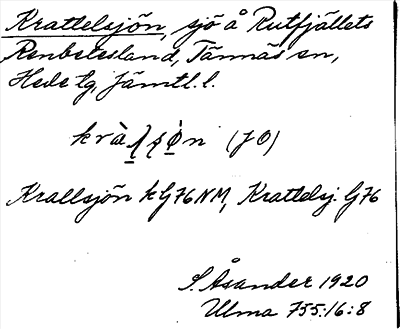 Krattelsjön, sjö å Rutfjällets
Renbetesland, Tännäs sn,
Hede tg, Jämtl. l.
Krallsjön k G76 NM, Krattelsj. G76
S. Åsander 1920
Ulma 755:16:8